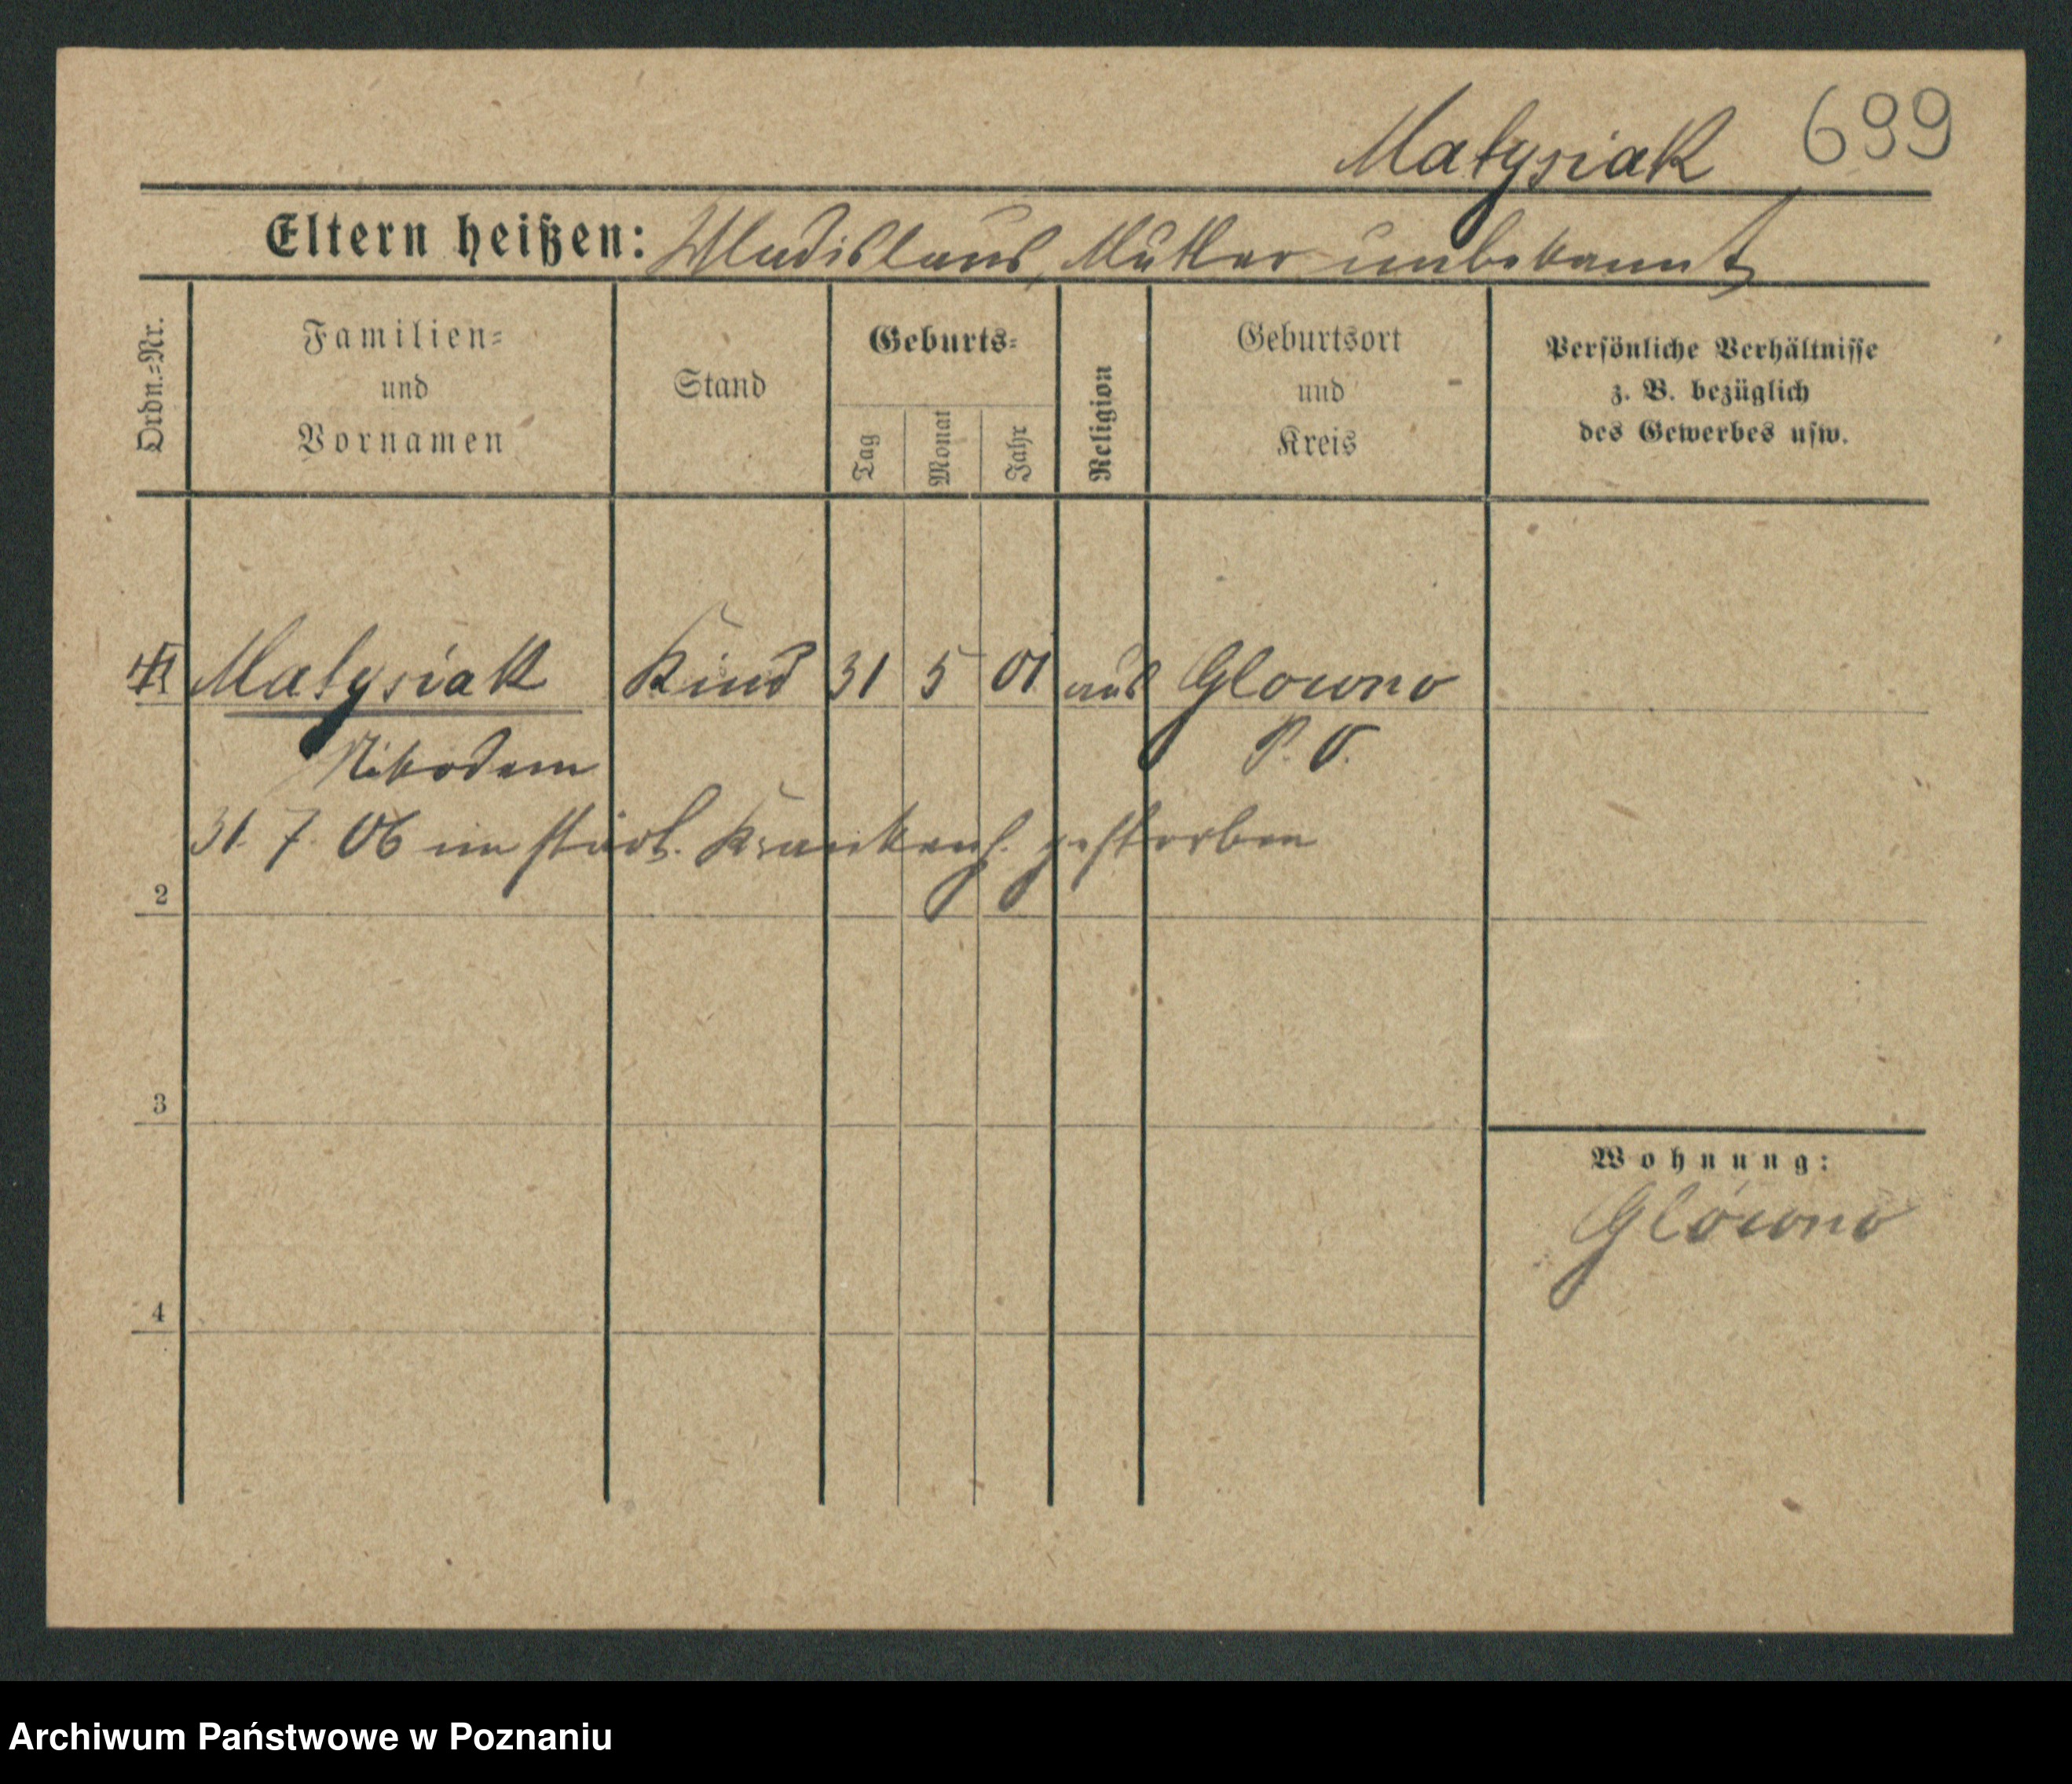 Matysiak 699
Eltern heißen: Wladislaus, Mutter unbekannt
Ordn.-Nr.
Familien-
und
Vornamen
Stand
Geburts-
Tag
Monat
Jahr
Religion
Geburtsort
und
Kreis
Persönliche Verhältnisse
z. B. bezüglich
des Gewerbes usw.
Matysiak Kind 31 5 01 aus Glowno
Nikodem P. O.
31. 7. 06 im städt. Krankenh. gestorben
2
3
Wohnung:
Glówno
4
Archiwum Państwowe w Poznaniu